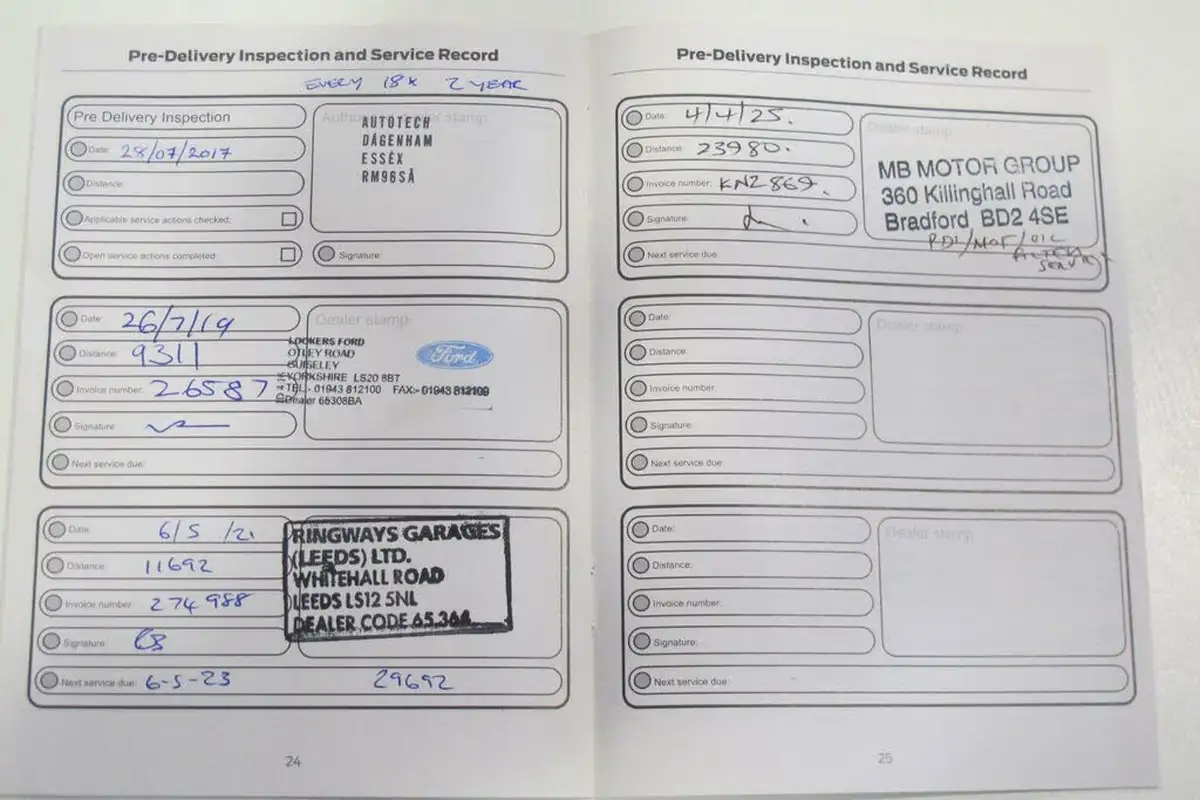 Pre-Delivery Inspection and Service Record
EVERY 18K 2 YEAR
Pre Delivery Inspection
Date: 28/07/2017
Distance:
Applicable service actions checked:
Open service actions completed
stamp
AUTOTECH
DAGENHAM
ESSEX
RM96SA
Signature:
Date: 26/7/19
Distance: 9311
Invoice number: 26587
Signature:
Next service due:
Dealer stamp
LOOKERS FORD
OTLEY ROAD
GUISELEY
YORKSHIRE LS20 8BT
TEL:- 01943 812100 FAX:- 01943 812109
Dealer 65308BA
Ford
Date: 6/5/21
Distance: 11692
Invoice number 274988
Signature:
Next service due: 6-5-23 29692
RINGWAYS GARAGES
(LEEDS) LTD.
WHITEHALL ROAD
LEEDS LS12 5NL
DEALER CODE 65.364
24
Pre-Delivery Inspection and Service Record
Date: 4/4/25.
Distance: 23980.
Invoice number: KN2869.
Signature:
Next service due:
Dealer stamp
MB MOTOR GROUP
360 Killinghall Road
Bradford BD2 4SE
PDI/MOT/OIL
Date:
Distance:
Invoice number:
Signature:
Next service due
Dealer stamp
Date:
Distance:
Invoice number:
Signature:
Next service due:
Dealer stamp
25